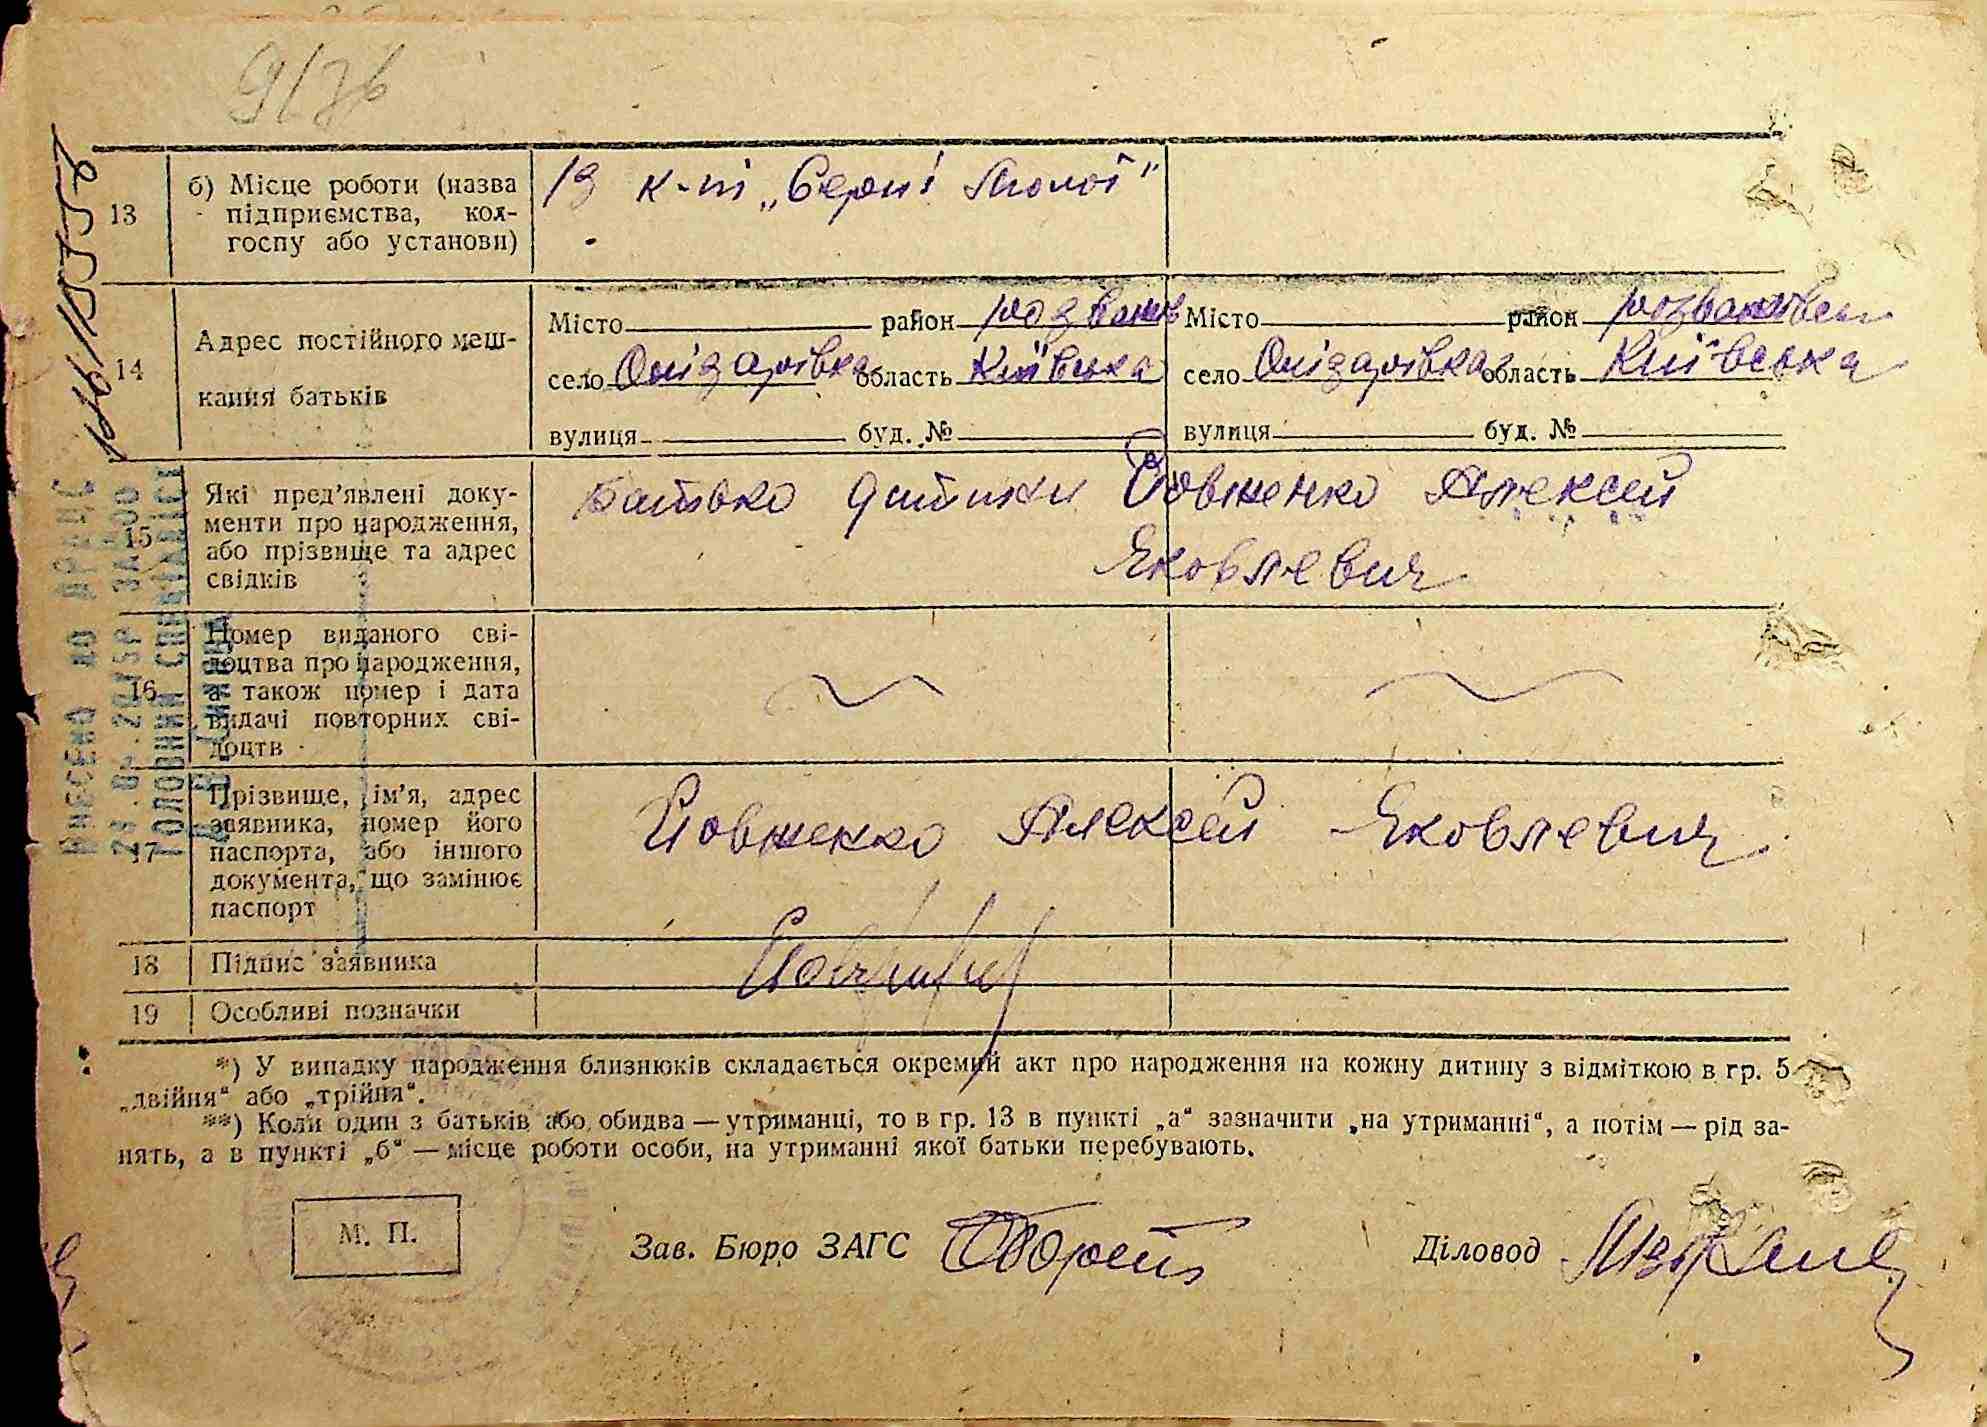 13
б) Місце роботи (назва
підприємства, кол-
госпу або установи)
к-п „Серп і Молот"
14
Адрес постійного меш-
кання батьків
Місто район Розважів
село область Київська
вулиця буд. №
Місто район
село область Київська
вулиця буд. №
15
Які пред'явлені доку-
менти про народження,
або прізвище та адрес
свідків
Батько дитини Йовженко Алексей
Яковлевич
16
Номер виданого сві-
доцтва про народження,
а також номер і дата
видачі повторних сві-
доцтв
17
Прізвище, ім'я, адрес
заявника, номер його
паспорта, або іншого
документа, що замінює
паспорт
Йовженко Алексей Яковлевич
18 Підпис заявника
19 Особливі позначки
*) У випадку народження близнюків складається окремий акт про народження на кожну дитину з відміткою в гр. 5
„двійня" або „трійня".
**) Коли один з батьків або обидва — утриманці, то в гр. 13 в пункті „а" зазначити „на утриманні", а потім — рід за-
нять, а в пункті „б" — місце роботи особи, на утриманні якої батьки перебувають.
М. П.
Зав. Бюро ЗАГС
Діловод
ВНЕСЕНО ДО ДРАЦС
ГОЛОВНИЙ СПЕЦІАЛІСТ